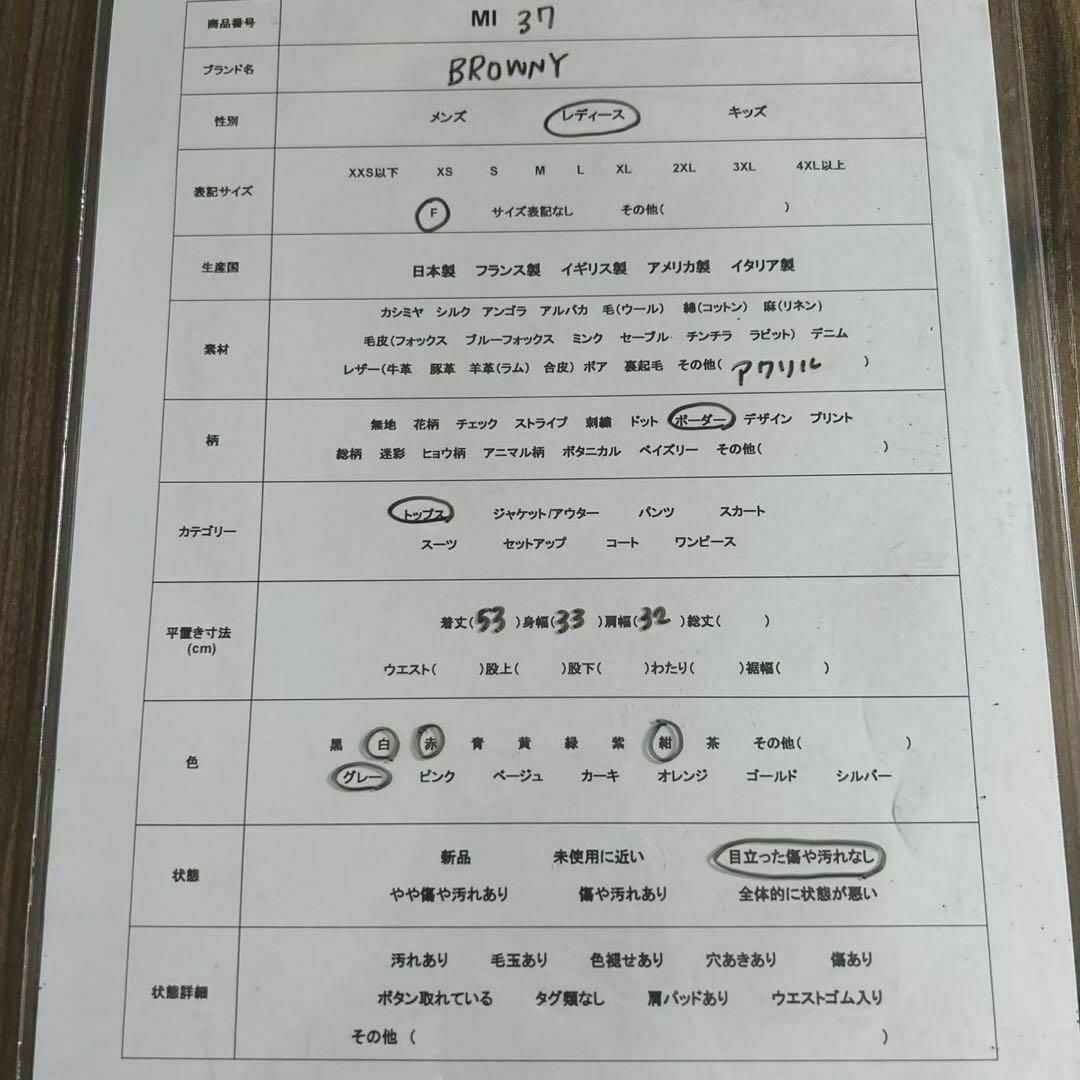 商品番号 MI 37
ブランド名 BROWNY
性別 メンズ レディース キッズ
表記サイズ
XXS以下 XS S M L XL 2XL 3XL 4XL以上
F サイズ表記なし その他( )
生産国 日本製 フランス製 イギリス製 アメリカ製 イタリア製
素材
カシミヤ シルク アンゴラ アルパカ 毛(ウール) 綿(コットン) 麻(リネン)
毛皮(フォックス ブルーフォックス ミンク セーブル チンチラ ラビット) デニム
レザー(牛革 豚革 羊革(ラム) 合皮) ボア 裏起毛 その他( アクリル )
柄
無地 花柄 チェック ストライプ 刺繍 ドット ボーダー デザイン プリント
総柄 迷彩 ヒョウ柄 アニマル柄 ボタニカル ペイズリー その他( )
カテゴリー
トップス ジャケット/アウター パンツ スカート
スーツ セットアップ コート ワンピース
平置き寸法
(cm)
着丈(53)身幅(33)肩幅(32)総丈( )
ウエスト( )股上( )股下( )わたり( )裾幅( )
色
黒 白 赤 青 黄 緑 紫 紺 茶 その他( )
グレー ピンク ベージュ カーキ オレンジ ゴールド シルバー
状態
新品 未使用に近い 目立った傷や汚れなし
やや傷や汚れあり 傷や汚れあり 全体的に状態が悪い
状態詳細
汚れあり 毛玉あり 色褪せあり 穴あきあり 傷あり
ボタン取れている タグ類なし 肩パッドあり ウエストゴム入り
その他 ( )